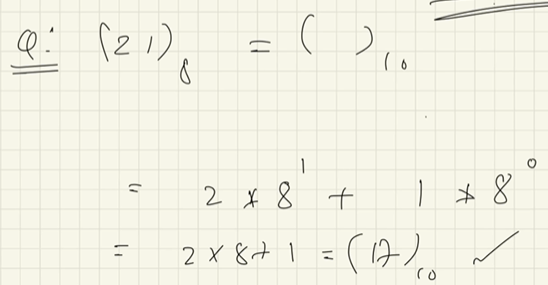 Q: (21)₈ = ( )₁₀
= 2 * 8¹ + 1 * 8⁰
= 2 × 8 + 1 = (17)₁₀ ✓